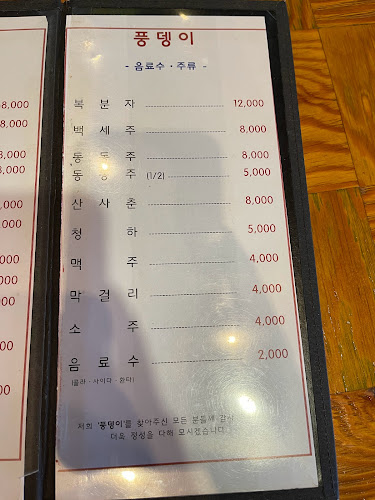 풍뎅이
- 음료수 · 주류 -
복 분 자 12,000
백 세 주 8,000
동 동 주 8,000
동 동 주 (1/2) 5,000
산 사 춘 8,000
청 하 5,000
맥 주 4,000
막 걸 리 4,000
소 주 4,000
음 료 수 2,000
(콜라 · 사이다 · 환타)
저희 '풍뎅이'를 찾아주신 모든 분들께 감사
더욱 정성을 다해 모시겠습니다.
8,000
8,000
8,000
8,000
,000
,000
,000
000
000
000